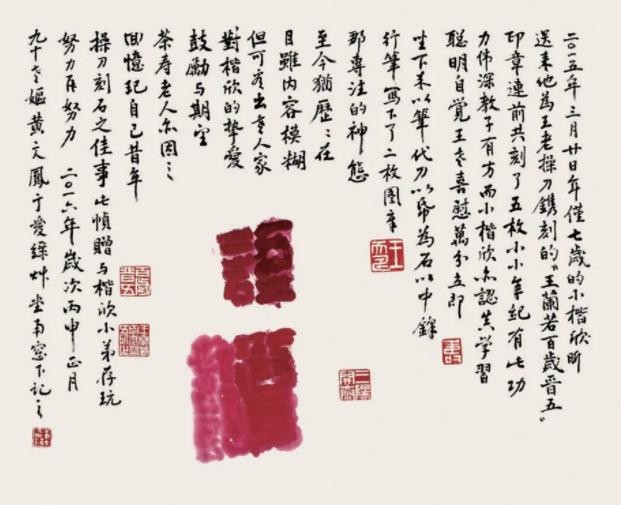 二〇一五年三月廿日年僅七歲的小楷欣昕
送来他為王老操刀鐫刻的“王蘭若百歲晉五”
印章連前共刻了五枚小小年紀有此功
力偉深教子有方而小楷欣亦認真学習
聪明自覚王老喜慰萬分立即
坐下来以筆代刀以帋為石以中鋒
行筆寫下了二枚图章
那專注的神態
至今猶歷歷在
目雖内容模糊
但可看出老人家
對楷欣的挚愛
鼓勵与期望
茶寿老人亦因之
回憶起自己昔年
操刀刻石之佳事此幀贈与楷欣小弟存玩
努力再努力 二〇一六年歲次丙申正月
九十老嫗黄文鳳于愛綠艸堂南窓下記之